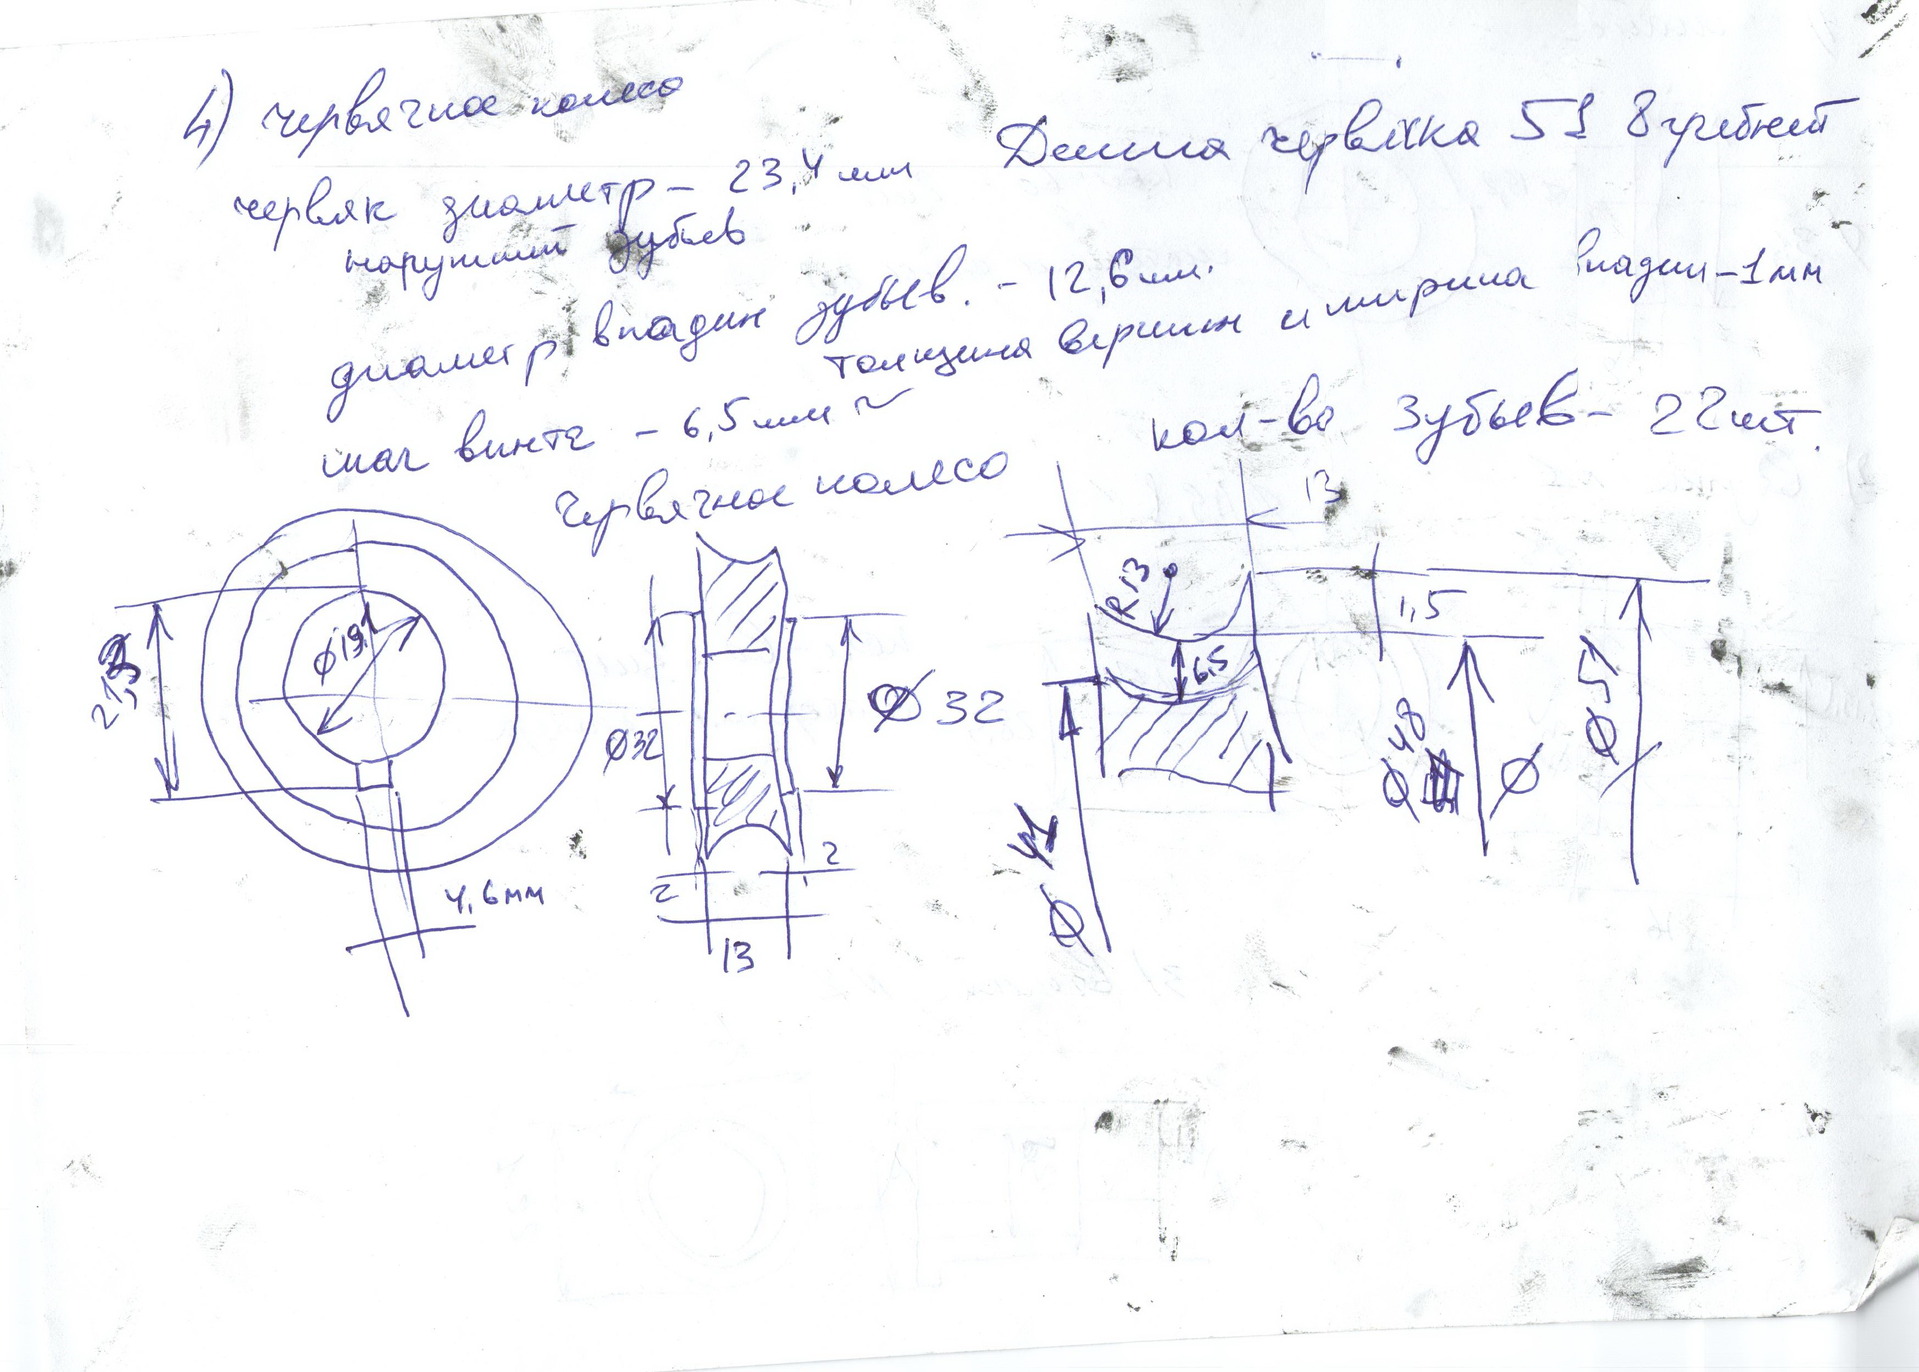 4) червячное колесо
червяк диаметр – 23,4 мм
наружний зубьев
Длина червяка 51 8 гребней
диаметр впадин зубьев. – 12,6 мм.
толщина вершин и ширина впадин – 1 мм
шаг винта – 6,5 мм ~
кол-во зубьев – 22 шт.
Червячное колесо
13
R13
1,5
21,3
ø19,1
6,5
ø32
ø32
ø41
ø48
ø
ø51
4,6 мм
2
2
13